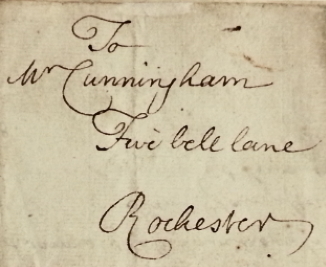 To
Mr Cunningham
Five bell lane
Rochester